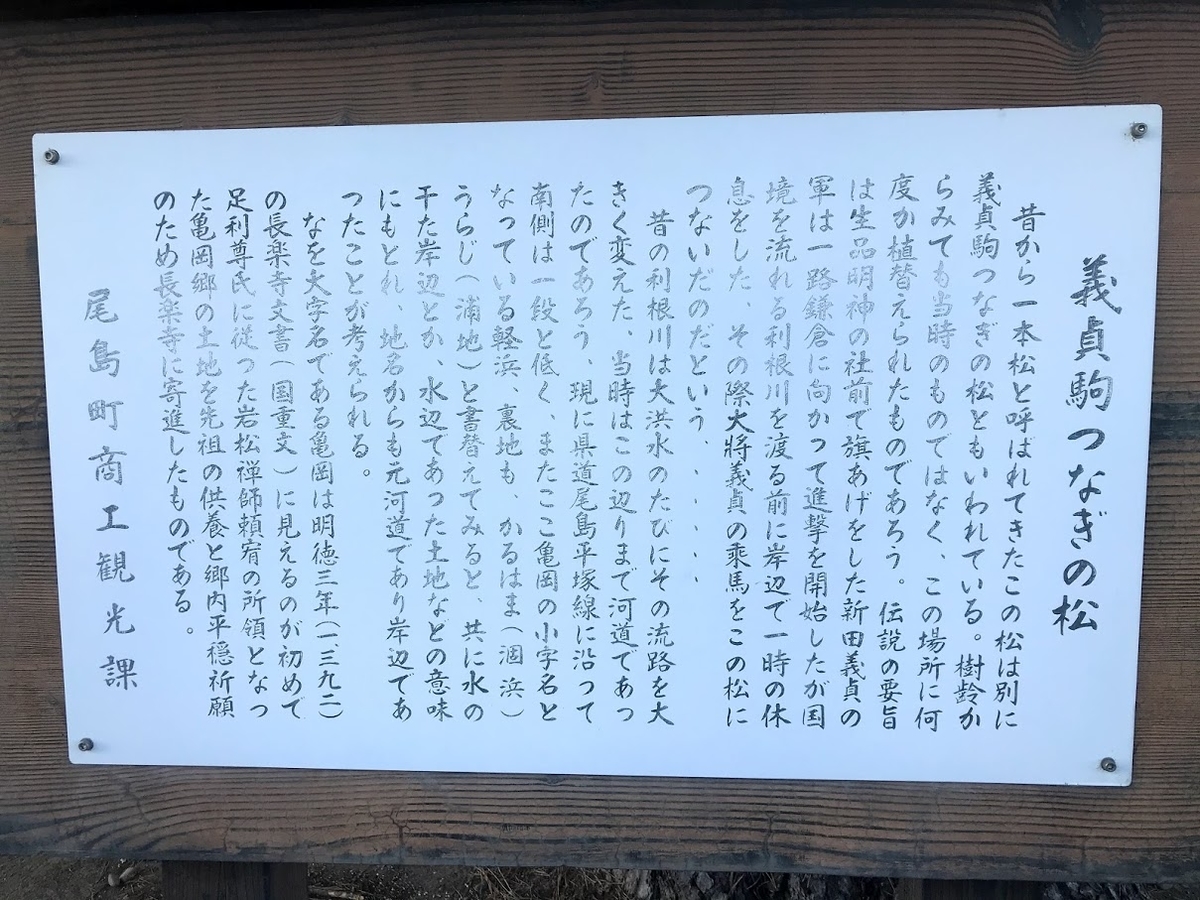 義貞駒つなぎの松
昔から一本松と呼ばれてきたこの松は別に
義貞駒つなぎの松ともいわれている。樹齢か
らみても当時のものではなく、この場所に何
度か植替えられたものであろう。伝説の要旨
は生品明神の社前で旗あげをした新田義貞の
軍は一路鎌倉に向かつて進撃を開始したが国
境を流れる利根川を渡る前に岸辺で一時の休
息をした、その際大將義貞の乗馬をこの松に
つないだのだという、、、、、
昔の利根川は大洪水のたびにその流路を大
きく変えた、当時はこの辺りまで河道であっ
たのであろう、現に県道尾島平塚線に沿って
南側は一段と低く、またここ亀岡の小字名と
なっている軽浜、裏地も、かるはま(涸浜)
うらじ(浦地)と書替えてみると、共に水の
干た岸辺とか、水辺であつた土地などの意味
にもとれ、地名からも元河道であり岸辺であ
つたことが考えられる。
なを大字名である亀岡は明徳三年(一、三九二)
の長楽寺文書(国重文)に見えるのが初めて
足利尊氏に従つた岩松禅師頼宥の所領となつ
た亀岡郷の土地を先祖の供養と郷内平穏祈願
のため長楽寺に寄進したものである。
尾島町商工観光課